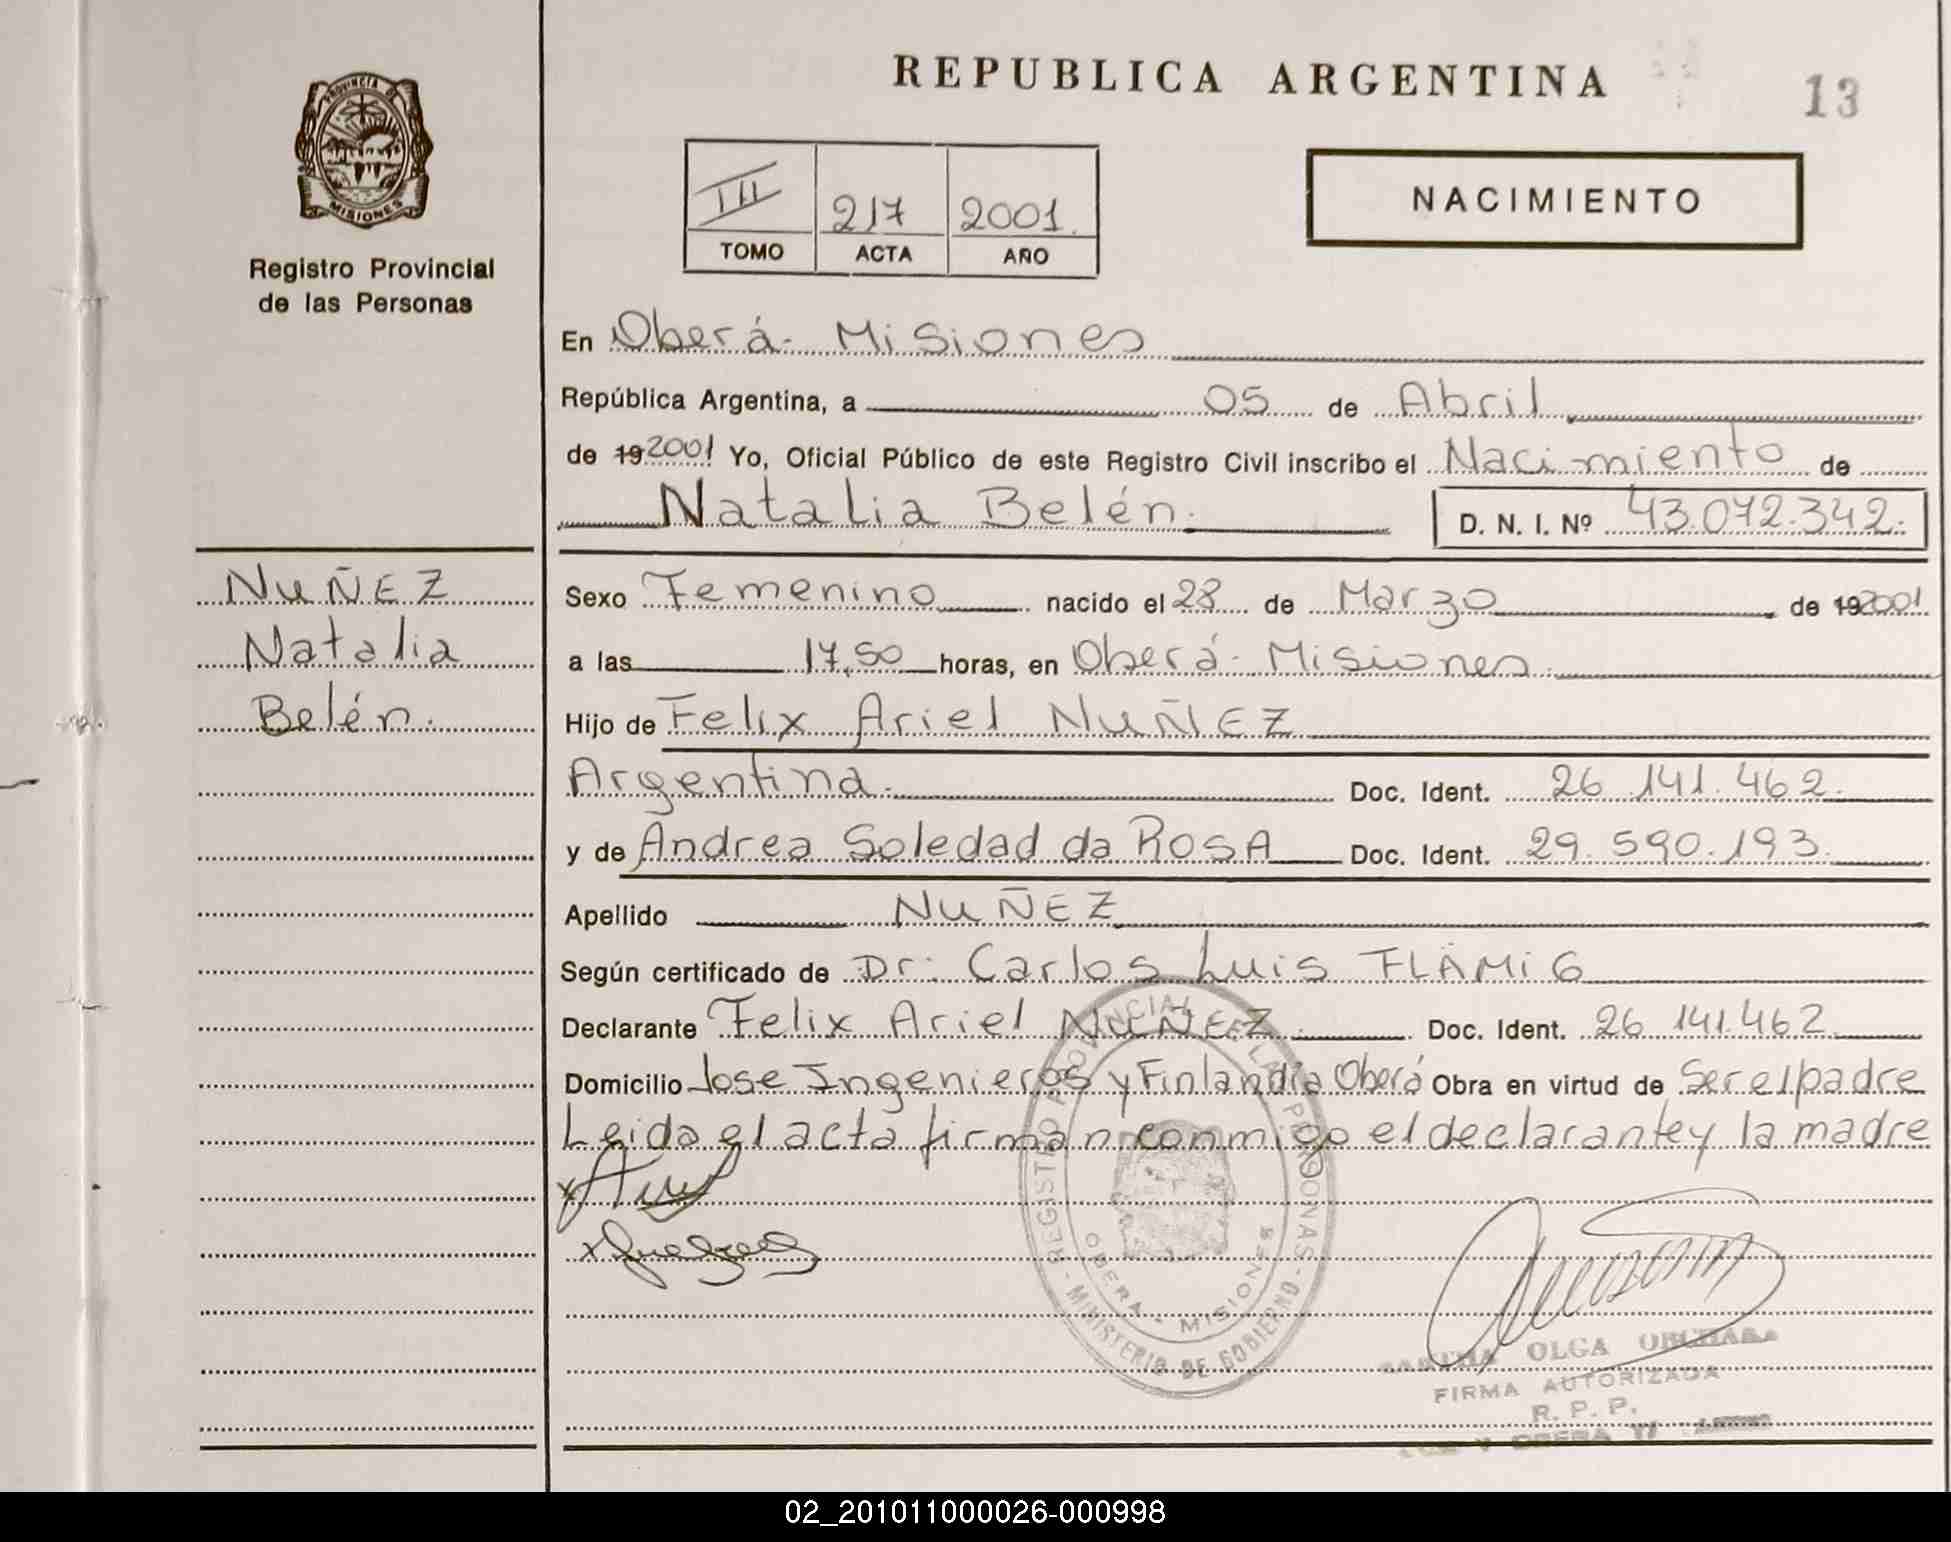 REPUBLICA ARGENTINA
13
PROVINCIA DE
MISIONES
Registro Provincial
de las Personas
III 217 2001.
TOMO ACTA AÑO
NACIMIENTO
En Oberá- Misiones
República Argentina, a 05 de Abril
de 19 2001 Yo, Oficial Público de este Registro Civil inscribo el Nacimiento de
Natalia Belén. D. N. I. Nº 43.072.342.
NUÑEZ
Natalia
Belén.
Sexo Femenino nacido el 28 de Marzo de 19 2001
a las 17,50 horas, en Oberá- Misiones.
Hijo de Felix Ariel NUÑEZ
Argentina. Doc. Ident. 26.141.462.
y de Andrea Soledad da ROSA Doc. Ident. 29.590.193.
Apellido NUÑEZ
Según certificado de Dr: Carlos Luis FLAMIG
Declarante Felix Ariel NUÑEZ. Doc. Ident. 26.141.462
Domicilio Jose Ingenieros y Finlandia Oberá Obra en virtud de Ser el padre
Leida el acta firman conmigo el declarante y la madre
REGISTRO PROVINCIAL DE LAS PERSONAS
OBERA - MISIONES
- MINISTERIO DE GOBIERNO -
OLGA
FIRMA AUTORIZADA
R. P. P.
OBERA
02_201011000026-000998